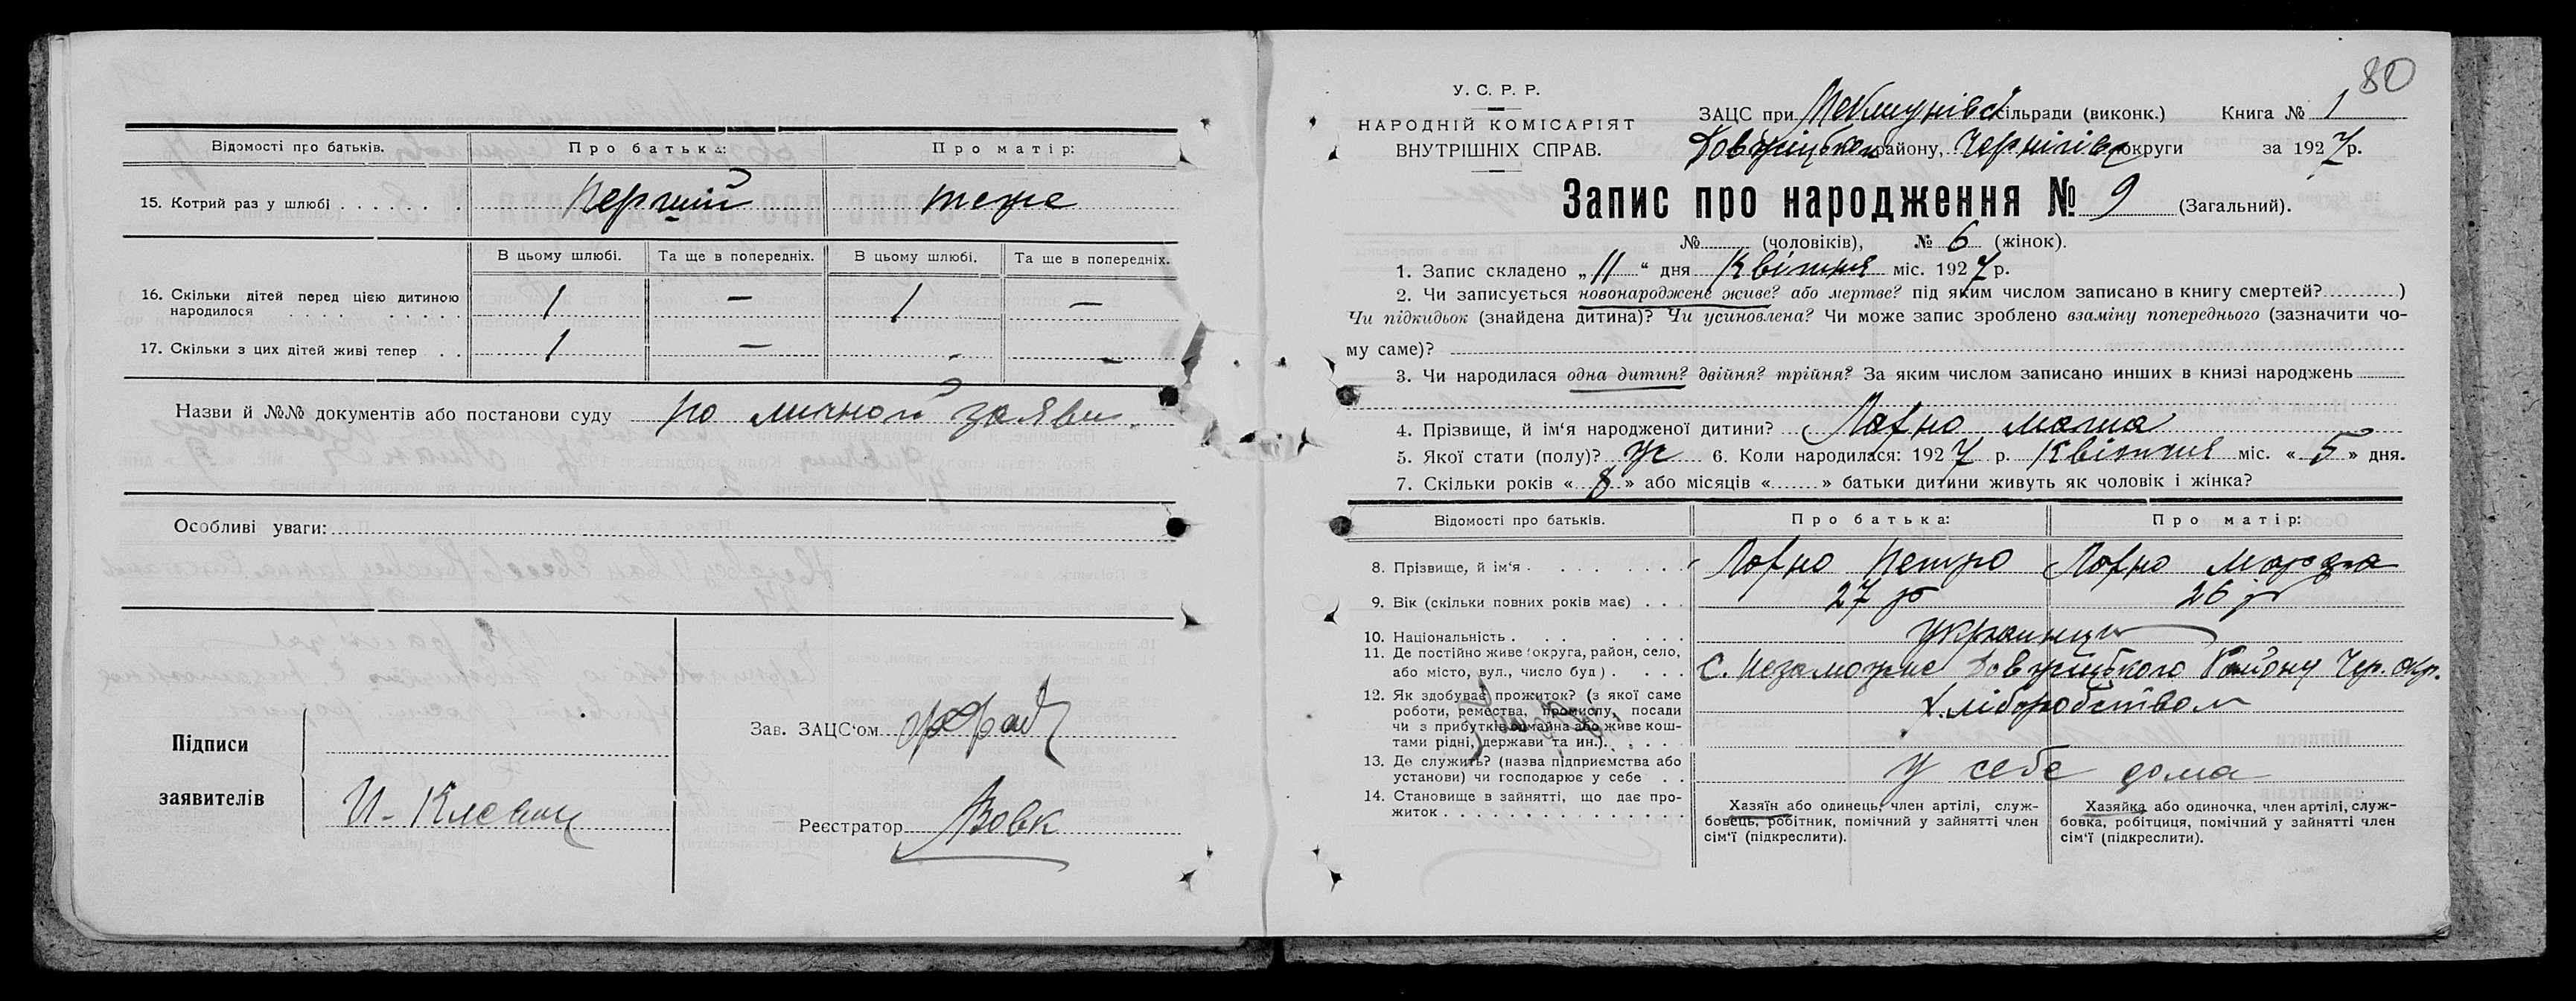 Відомості про батьків. Про батька: Про матір:
15. Котрий раз у шлюбі . . . . . . . Перший теже
В цьому шлюбі. Та ще в попередніх. В цьому шлюбі. Та ще в попередніх.
16. Скільки дітей перед цією дитиною
народилося . . . . . . . . . 1 — 1 —
17. Скільки з цих дітей живі тепер . . 1 — - -
Назви й №№ документів або постанови суду по личной заяви.
Особливі уваги:
Підписи
заявителів
Зав. ЗАЦС'ом
Реєстратор Вовк
80
У. С. Р. Р.
НАРОДНІЙ КОМІСАРІЯТ
ВНУТРІШНІХ СПРАВ.
ЗАЦС при сільради (виконк.) Книга № 1
району, Чернігівс округи за 1927 р.
Запис про народження № 9 (Загальний).
№ (чоловіків), № 6 (жінок).
1. Запис складено „ 11 “ дня Квітня міс. 1927 р.
2. Чи записується новонароджене живе? або мертве? під яким числом записано в книгу смертей? )
Чи підкидьок (знайдена дитина)? Чи усиновлена? Чи може запис зроблено взаміну попереднього (зазначити чо-
му саме)?
3. Чи народилася одна дитин? двійня? трійня? За яким числом записано инших в книзі народжень
4. Прізвище, й ім'я народженої дитини?
5. Якої стати (полу)? ж 6. Коли народилася: 1927 р. Квітня міс. « 5 » дня.
7. Скільки років « 8 » або місяців « » батьки дитини живуть як чоловік і жінка?
Відомості про батьків. Про батька: Про матір:
8. Прізвище, й ім'я . . . . . . . Петро
9. Вік (скільки повних років має) . . . 27 26
10. Національність . . . . . . . украинци
11. Де постійно живе (округа, район, село,
або місто, вул., число буд) . . . . С. Незаможне Довжицького Району Чер. окр.
12. Як здобуває прожиток? (з якої саме
роботи, ремества, промислу, посади
чи з прибутків домайна або живе кош-
тами рідні, держави та ин.). . . . . Хліборобством
13. Де служить? (назва підприємства або
установи) чи господарює у себе . . У себе дома
14. Становище в зайнятті, що дає про-
житок . . . . . . . . . . . . . . .
Хазяїн або одинець, член артілі, служ-
бовець, робітник, помічний у зайнятті член
сім'ї (підкреслити).
Хазяйка або одиночка, член артілі, служ-
бовка, робітниця, помічний у зайнятті член
сім'ї (підкреслити).